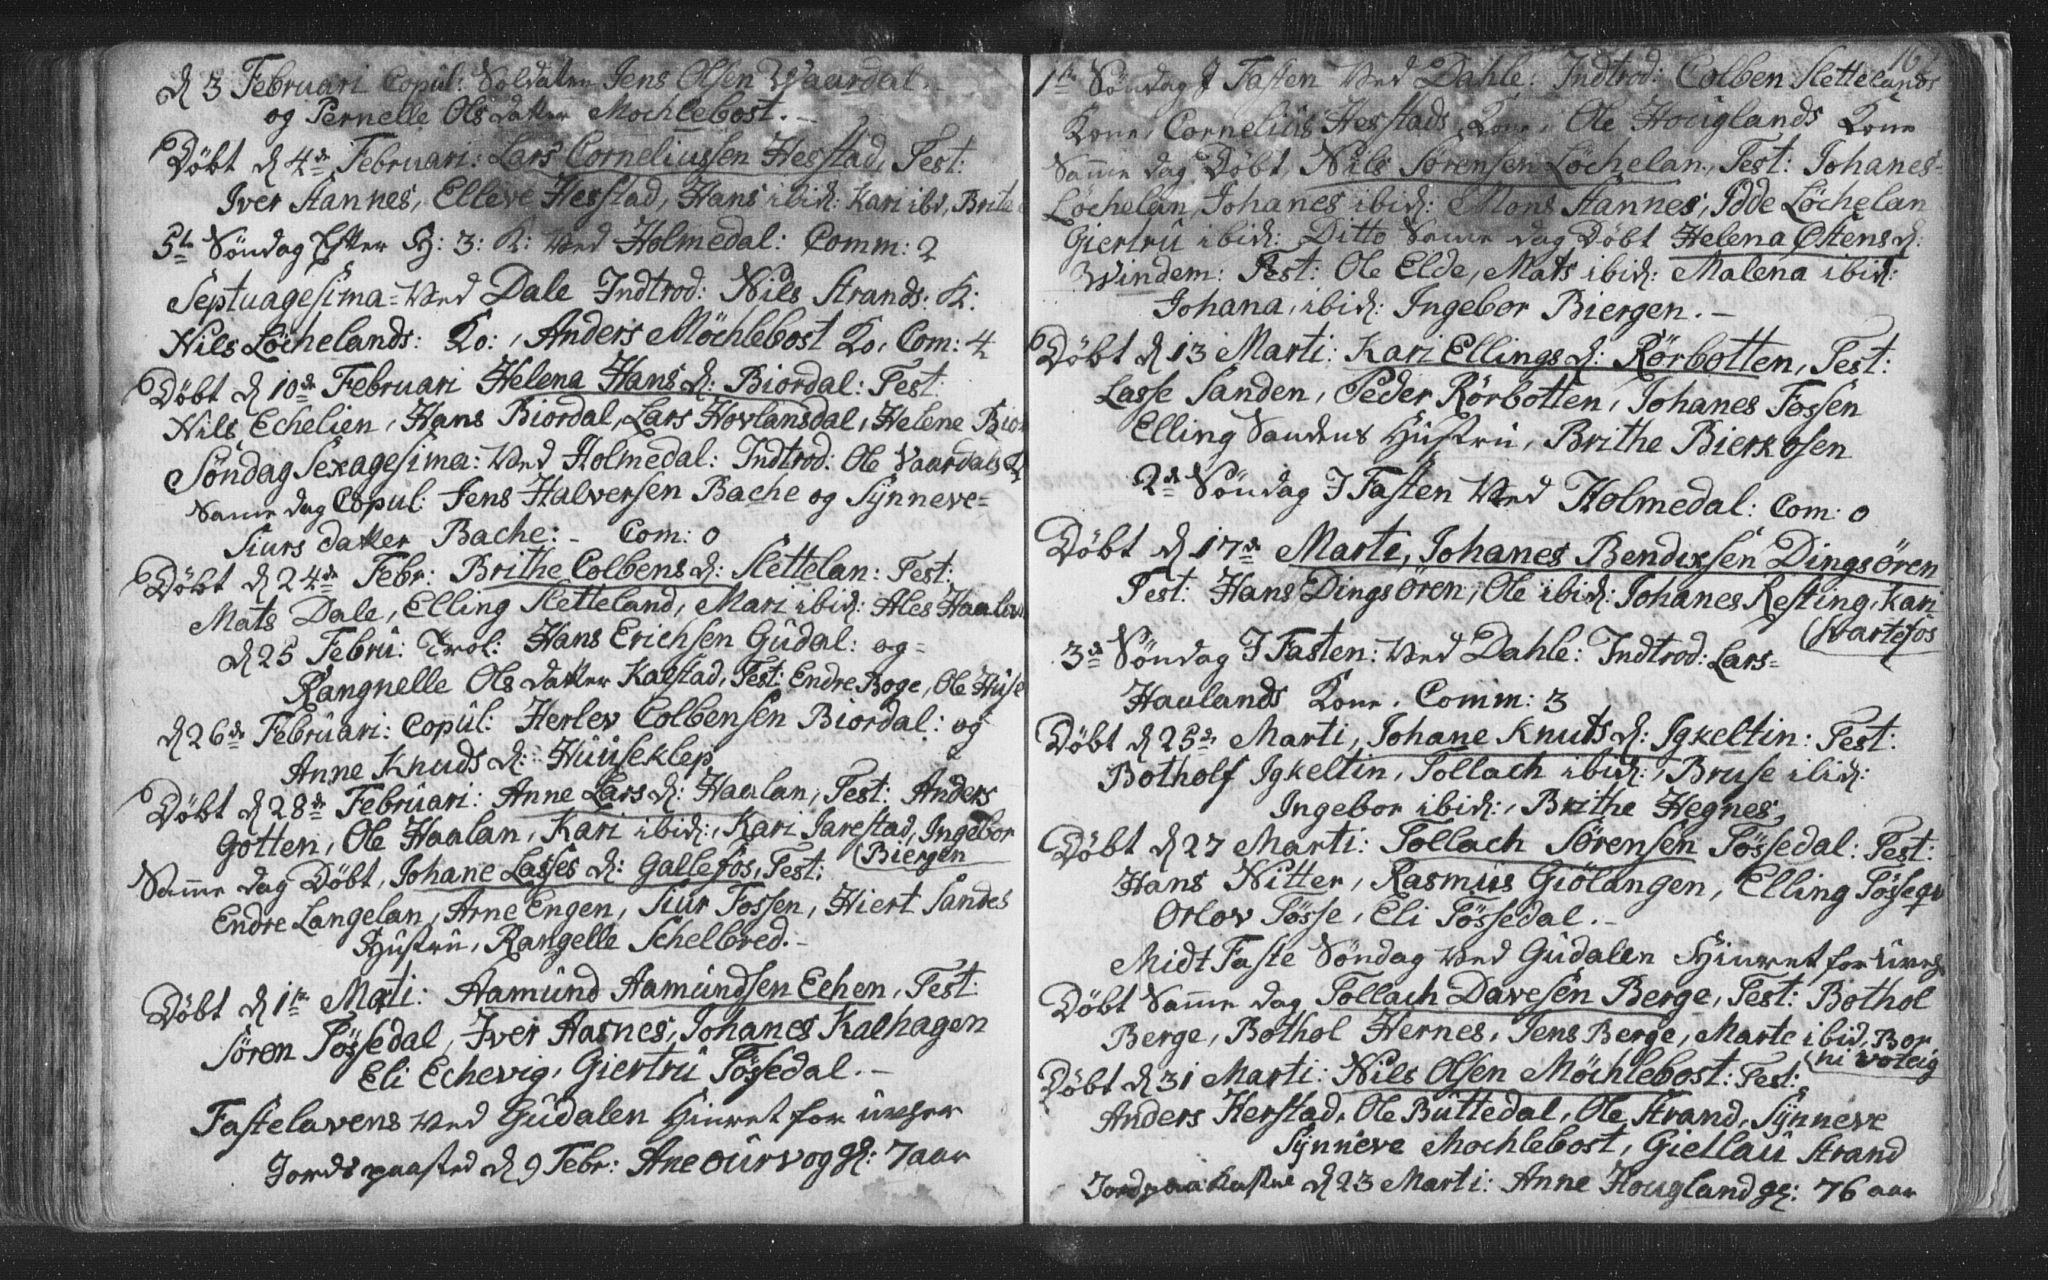 d 3 Februari Copul: Soldaten Jens Olsen Waardal.
og Pernelle Ols datter Mochlebost.
Döbt d 4de Februari: Lars Corneliussen Hesstad, Test:
Iver Stannes, Elleve Hesstad, Hans ibid: Kari ibd, Brite
5te Söndag Efter H: 3: K: Ved Holmedal: Comm: 2
Septuagesima = Ved Dale Indtrod: Nils Strands: K:
Nils Löchelands: Ko:, Anders Möchlebost Ko, Com: 4
Döbt d 10de Februari Helena Hans d: Biordal: Test:
Nils Echelien, Hans Biordal, Lars Hovlansdal, Helene Bior
Söndag Sexagesima: Ved Holmedal: Indtrod: Ole Vaardals K
Same dag Copul: Jens Halversen Bache og Sÿnneve=
Siurs datter Bache: - Com: 0
Döbt d 24de Febr: Brithe Colbens d: Slettelan: Test:
Mats Dale, Elling Sletteland, Mari ibid: Ales
d 25 Febru: Trol: Hans Erichsen Gudal: og=
Rangnelle Ols datter Kalstad, Test: Endre Boge, Ole Huse
d 26de Februari: Copul: Herlev Colbensen Biordal: og
Anne Knuds d: Huuseklep
Döbt d 28de Februari: Anne Lars d: Haalan, Test: Anders
Gotten, Ole Haalan, Kari ibid:, Kari Jarestad, Ingebor
(Biergen
Samme dag Döbt, Johane Lasses d: Gallefos, Test:
Endre Langelan, Arne Engen, Siur Fossen, Hiert Sandes
Hustru, Rangelle Schelbred.-
Döbt d 1te Mati: Aamund Aamundsen Echen, Test:
Sören Tössedal, Iver Aasnes, Johanes Kalhagen
Eli Echevig, Giertru Tössedal.-
Fastelavens Ved Gudalen
Jords paasted d 9 Febr: Ane gl: 7 aar
162
1te Söndag J Fasten Ved Dahle: Indtrod: Colben Slettelands
Kone, Cornelius Hesstads Kone, Ole Houglands Kone
Samme dag Döbt, Nils Sörensen Löchelan, Test: Johanes=
Löchelan, Johanes ibid: Mons Stannes, Idde Löchelan
Giertru ibid: Ditto Same dag Döbt Helena Ostens d:
Windem: Test: Ole Elde, Mats ibid: Malena ibid:
Johana, ibid: Ingebor Biergen.-
Döbt d 13 Marti: Kari Ellings d: Rörbotten, Test:
Lasse Sanden, Peder Rörbotten, Johanes Fossen
Elling Sandens Hustru, Brithe Bierkosen
2de Söndag J Fasten Ved Holmedal: Com: 0
Döbt d 17de Marti, Johanes Bendixsen Dingsören
Test: Hans Dingsören, Ole ibid: Johanes Resting, Kari
(Svartefos
3de Söndag J Fasten: Ved Dahle: Indtrod: Lars=
Haulands Kone. Comm: 3
Döbt d 25de Marti, Johane Knuts d: Igkeltin: Test:
Botholf Igkeltin, Tollach ibid:, Bruse ibid:
Ingebor ibid:, Brithe Hegnes,
Döbt d 27 Marti: Tollach Sörensen Tössedal: Test:
Hans Nitter, Rasmus Giölangen, Elling
Orlov Tösse, Eli Tössedal.-
Midt Faste Söndag Ved Gudalen
Döbt Samme dag Tollach Davesen Berge, Test: Bothol
Berge, Bothol Hernes, Jens Berge, Marte ibid, Bor
(ni Woleig
Döbt d 31 Marti: Nils Olsen Möchlebost: Test:
Anders Herstad, Ole Buttedal, Ole Strand, Sÿnneve
Sÿnneve Mochlebost, Giellau Strand
Jord paa kastne d 23 Marti: Anne Hougland gl: 76 aar